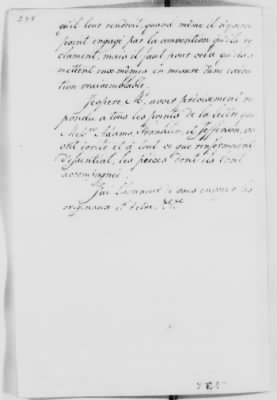 228
qu'il leur rendroit, quand même il n'y seroit
point engagé par la convention qu'ils re
clament, mais il faut pour cela qu'ils se
mettent eux mêmes en mesure d'une execu
tion vraisemblable.
J'espere M. avoir précisement re
pondu a tous les points de la lettre que
Mess.rs Adams, Franklin, et Jefferson, vous
ont écrite et a tout ce que renfermoient
d'essentiel, les pieces dont ils l'ont
accompagnée.
J'ai l'honneur de vous envoyer les
originaux et d'etre. &c.